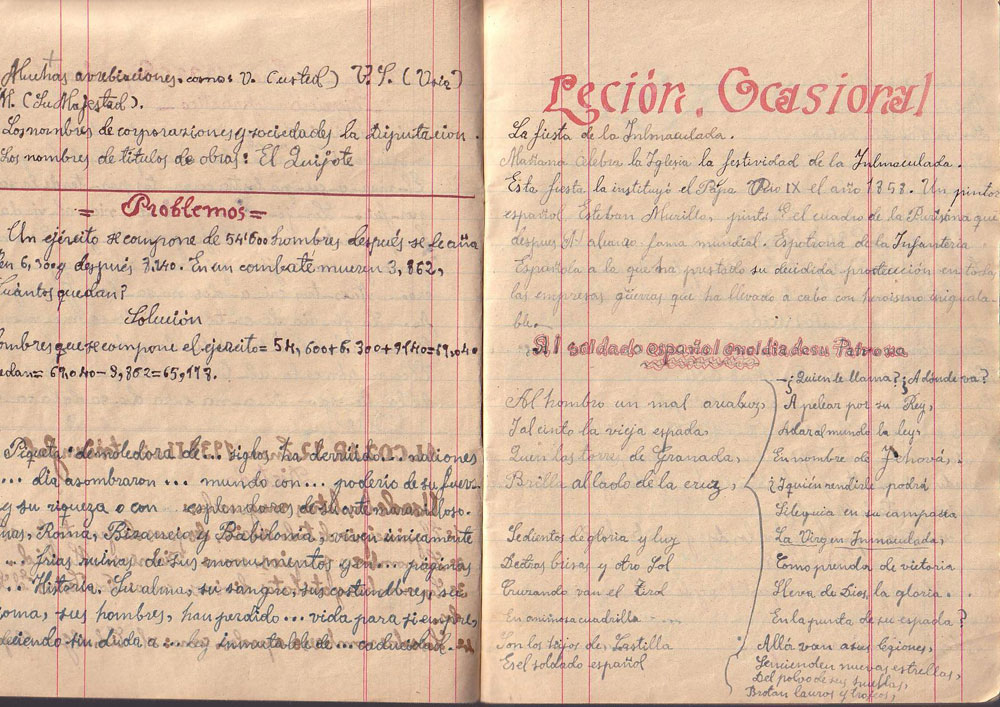 Muchas avrebiaciones, como: V. (usted) V.S. (Usía)
M. (Su Majestad).
Los nombres de corporaziones y sociedades la Diputación.
Los nombres de titulos de obras: El Quijote
= Problemos =
Un ejército se compone de 54'600 hombres después se le aña
en 6,300 y después 9.140. En un combate mueren 3,862,
cuántos quedan?
Solución
ombres que se compone el ejercito = 54,600+6.300+9140=69,040
edan = 69.040-3,862=65,178.
Piqueta demoledora de... siglos ha derruido... naciones
... día asombraron ... mundo con ... poderio de su fuerz
y su riqueza o con esplendores de su arte maravilloso.
nas, Roma, Bizancio y Babilonia, viven únicamente
... frias ruinas de sus monumentos y en ... páginas
... Historia. Su alma, su sangre, sus costunbres, su
ioma, sus hombres, han perdido ... vida para siempre
deciendo sin duda a ... ley inmutable de ... caducidad.
Leción. Ocasional
La fiesta de la Inlmaculada.
Mañana celebra la Iglesia la festividad de la Inlmaculada.
Esta fiesta la instituyó el Papa Pio IX el año 1858. Un pintor
español Esteban Murillo, pintó el cuadro de la Purisima que
despues alcanzo fama mundial. Es potrona de la Infanteria
Española a la que ha prestado su decidida protección en toda
las empresas güerras que ha llevado a cabo con heroismo iniguala
ble.
Al soldado español en el dia de su Patrona
Al hombro un mal arcabuz,
I al cinto la vieja espada,
Quen las torres de Granada,
Brilla al lado de la cruz,
Sedientos de gloria y luz
De otras brisas y otro Sol
Cruzando van el
En animosa cuadrilla
Son los hijos de Castilla
Es el soldado español
-¿Quien le llama? ¿A dónde va?
A pelear por su Rey,
A dar al mundo la ley,
En nombre de Jehová.
¿I quién rendirle podrá
Si leguia en su campaña
La Virgen Inmaculada,
Como prenda de victoria
Lleva de Dios la gloria.
En la punta de su espada?
Allá van a sus legiones,
Se encienden nuevas estrellas,
Del polvo de sus huellas,
Brotan lauros y trofeos,